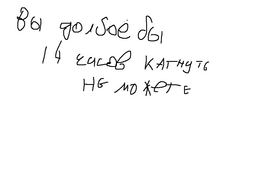 Вы долбоё бы
14 часов катнуть
не можете